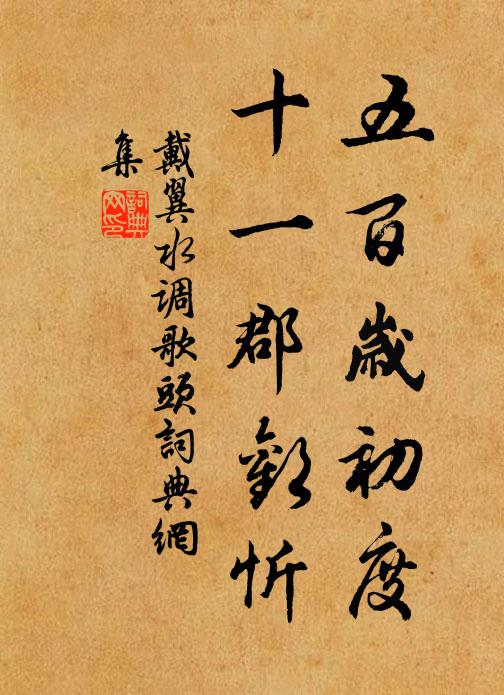 五百歲初度
十一郡歡忻
戴翼水调歌頭詞典網
集
詞典网印